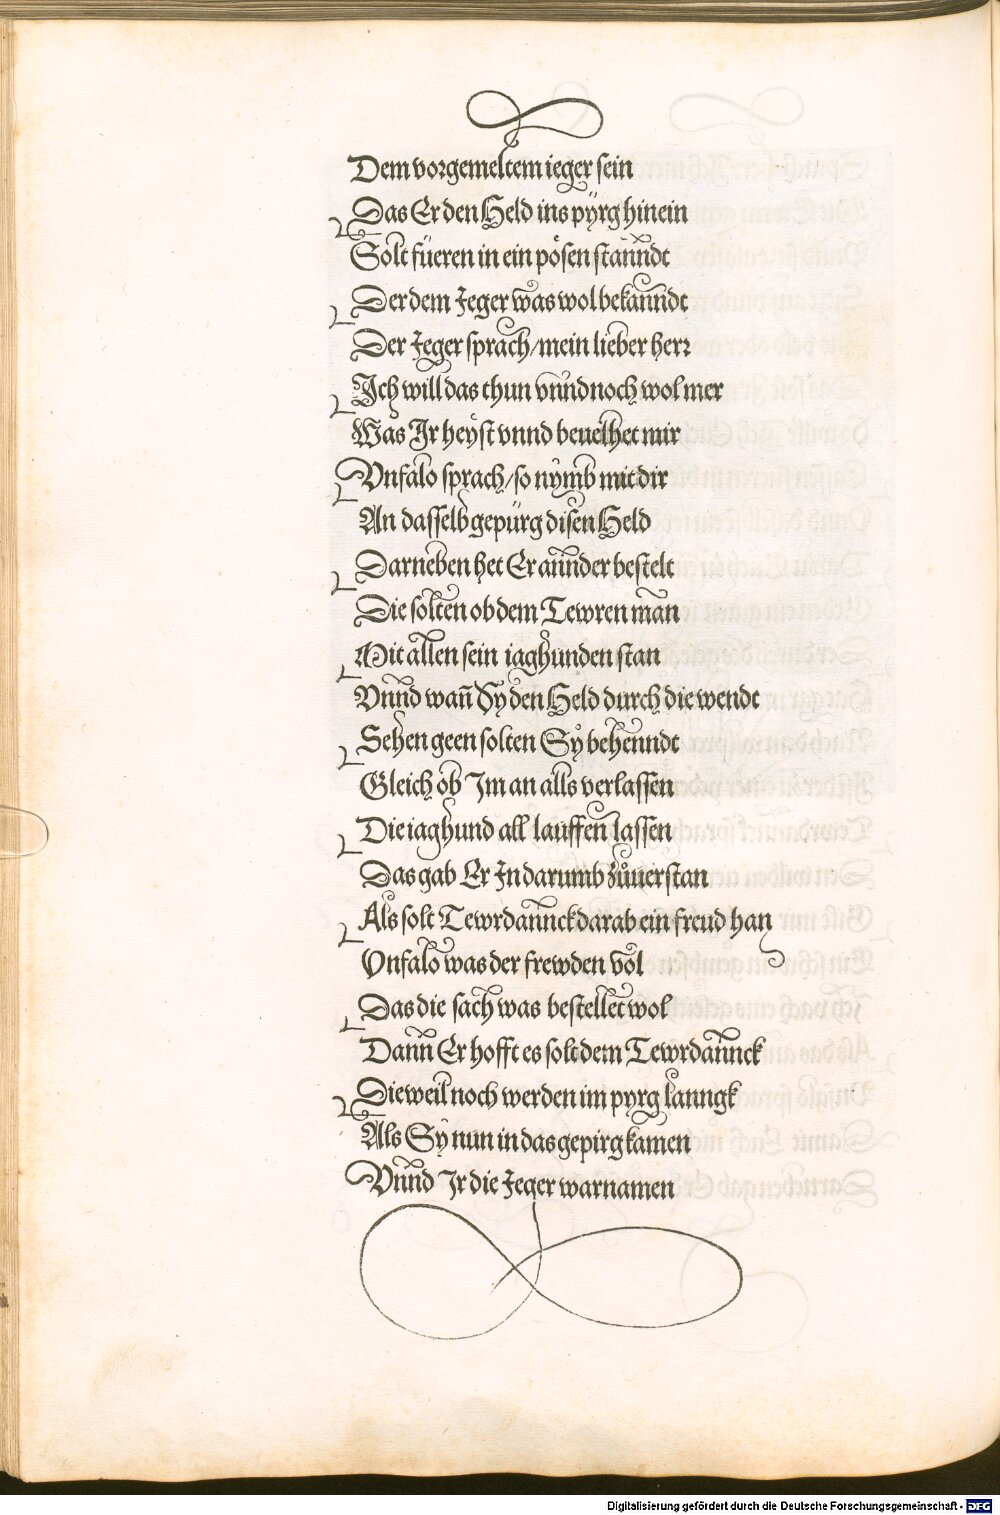 Dem vorgemeltem ieger sein
Das Er den Held ins pÿrg hinein
Solt füeren in ein pösen stannndt
Der dem Jeger was wol bekanndt
Der Jeger sprach/mein lieber herr
Ich will das thun vnnd noch wol mer
Was Ir heÿst vnnd beuelhet mir
Vnfalo sprach/so nÿmb mit dir
An dasselb gepürg disen Held
Darneben het Er annder bestelt
Die solten ob dem Tewren man
Mit allen sein iaghunden stan
Vnnd wan̄ Sy den Held durch die wendt
Sehen geen solten Sÿ behenndt
Gleich ob Im an alls verlassen
Die iaghund all lauffen lassen
Das gab Er In darumb zůuerstan
Als solt Tewrdannck darab ein freud han
Vnfalo was der frewden vol
Das die sach was bestellet wol
Dann Er hofft es solt dem Tewrdannck
Dieweil noch werden im pyrg lanngk
Als Sÿ nun in das gepirg kamen
Vnnd Ir die Jeger warnamen
Digitalisierung gefördert durch die Deutsche Forschungsgemeinschaft - DFG